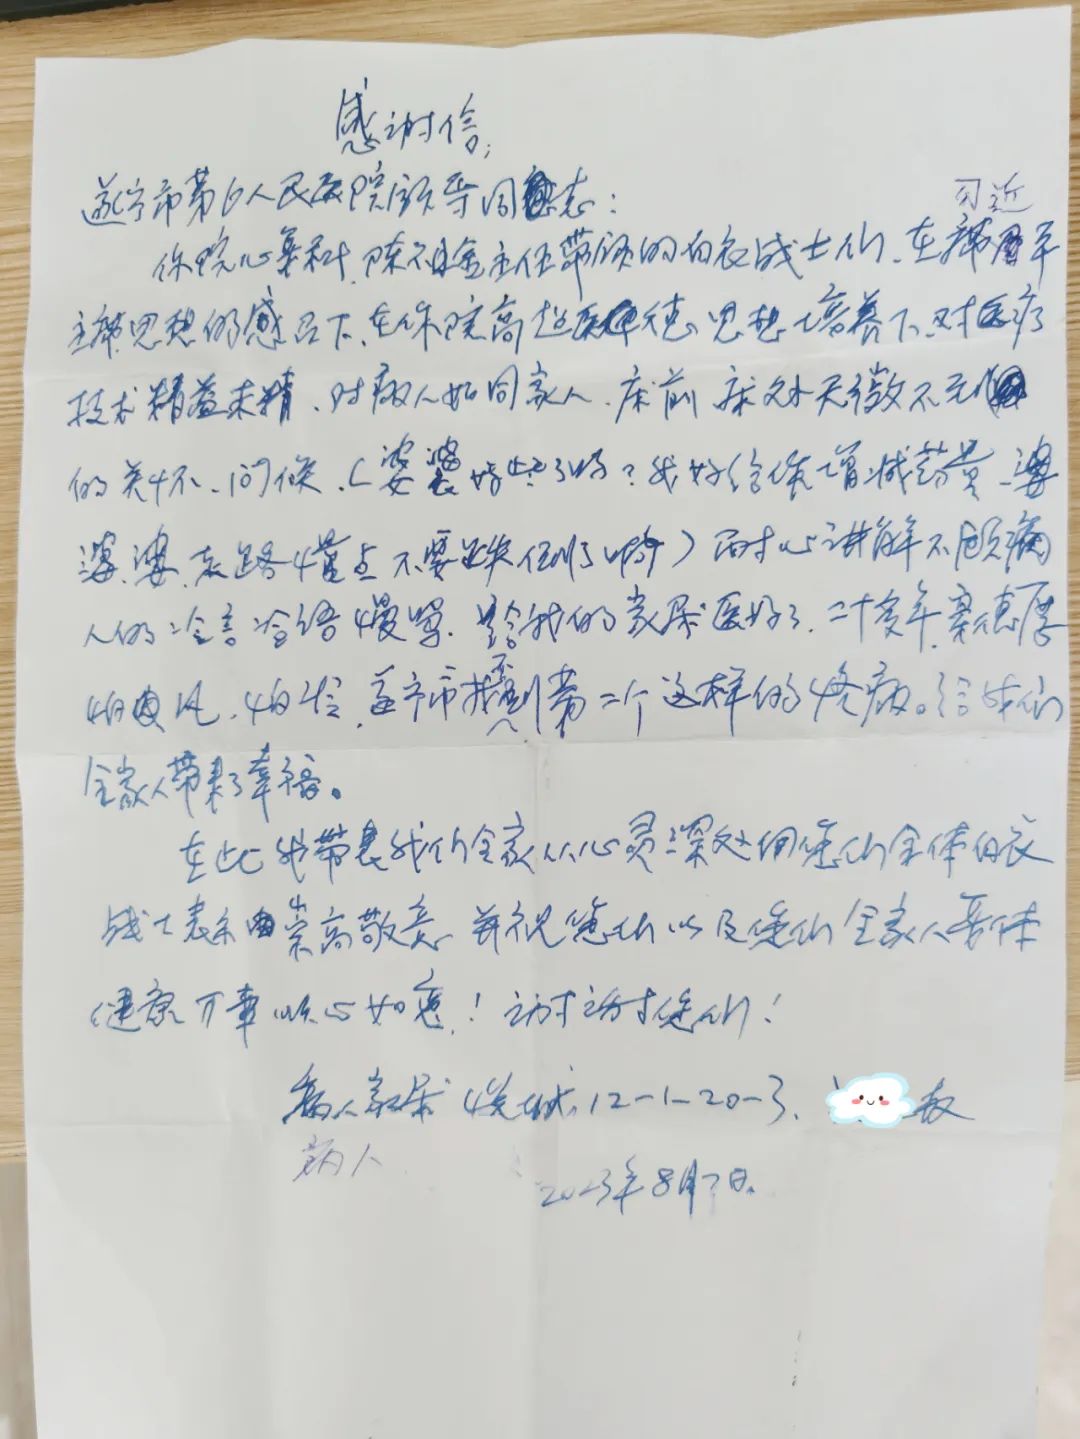 感谢信;
遂宁市第6人民医院领导同志:
习近
你院心算科 主任带领的白衣战士们、在 平
主席思想的感召下、在你院高超医德思想培养下、对医疗
技术精益求精、对病人如同家人、床前床外无微不至
的关怀、问候、(婆婆好些了吗?我好给您增减药量、婆
婆、婆、走路慢点不要跌倒了哟)耐心讲解不顾病
人的冷言冷语慢骂、给我的家属医好了、二十多年、
怕风、怕冷、遂宁市找不到第二个这样的疾病。给我们
全家人带来了幸福。
在此我带表我们全家从心灵深处向您们全体白衣
战士表示崇高敬意 并祝您们以及您们全家人身体
健康 万事顺心如意!谢谢您们!
病人家属 12-1-20-3、
病人
2023年8月7日、